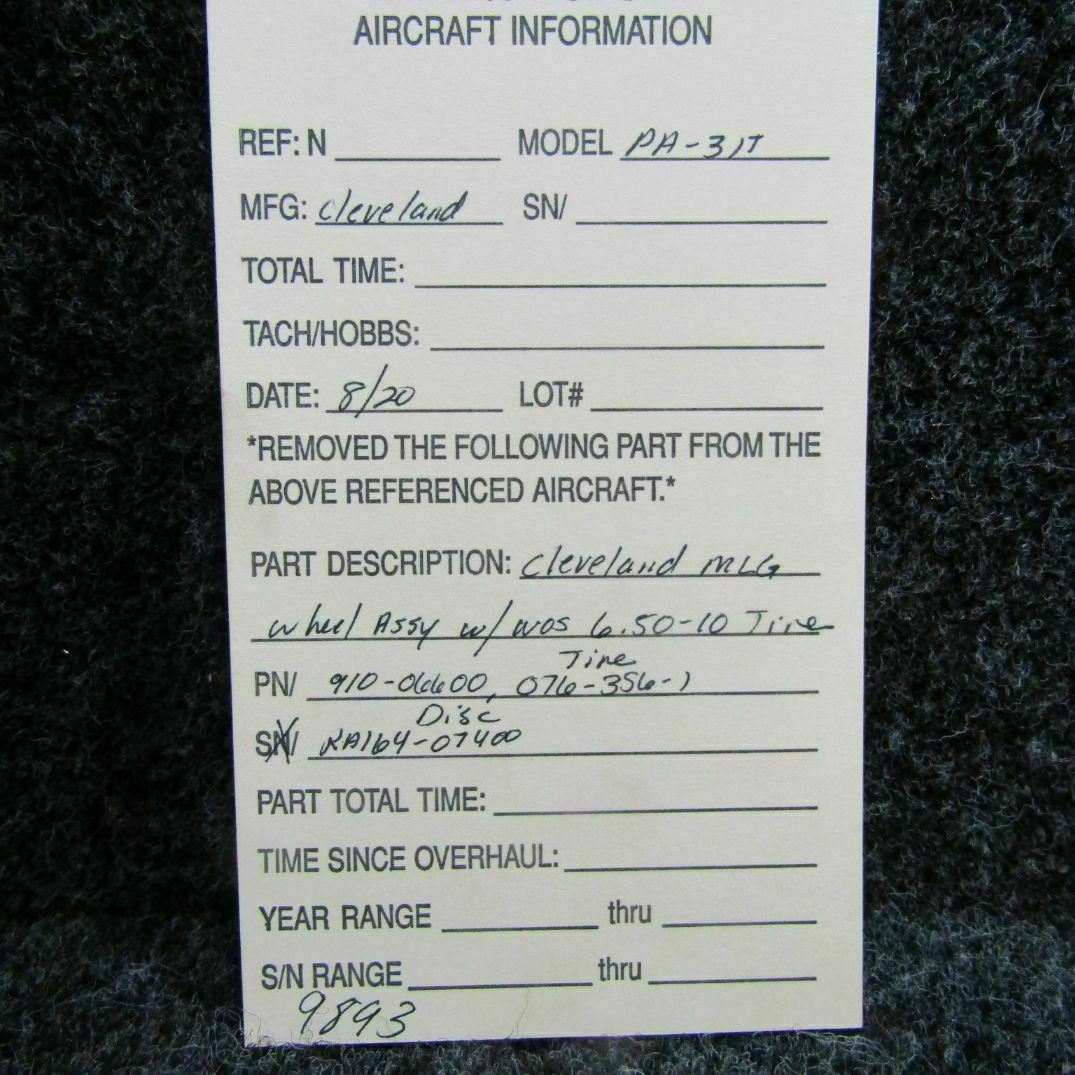 AIRCRAFT INFORMATION
REF: N MODEL PA-31T
MFG: Cleveland SN/
TOTAL TIME:
TACH/HOBBS:
DATE: 8/20 LOT#
*REMOVED THE FOLLOWING PART FROM THE
ABOVE REFERENCED AIRCRAFT.*
PART DESCRIPTION: Cleveland MLG
Wheel Assy w/ NOS 6.50-10 Tire
Tire
PN/ 910-06600, 076-356-1
Disc
SN/ RA164-07400
PART TOTAL TIME:
TIME SINCE OVERHAUL:
YEAR RANGE thru
S/N RANGE thru
9893